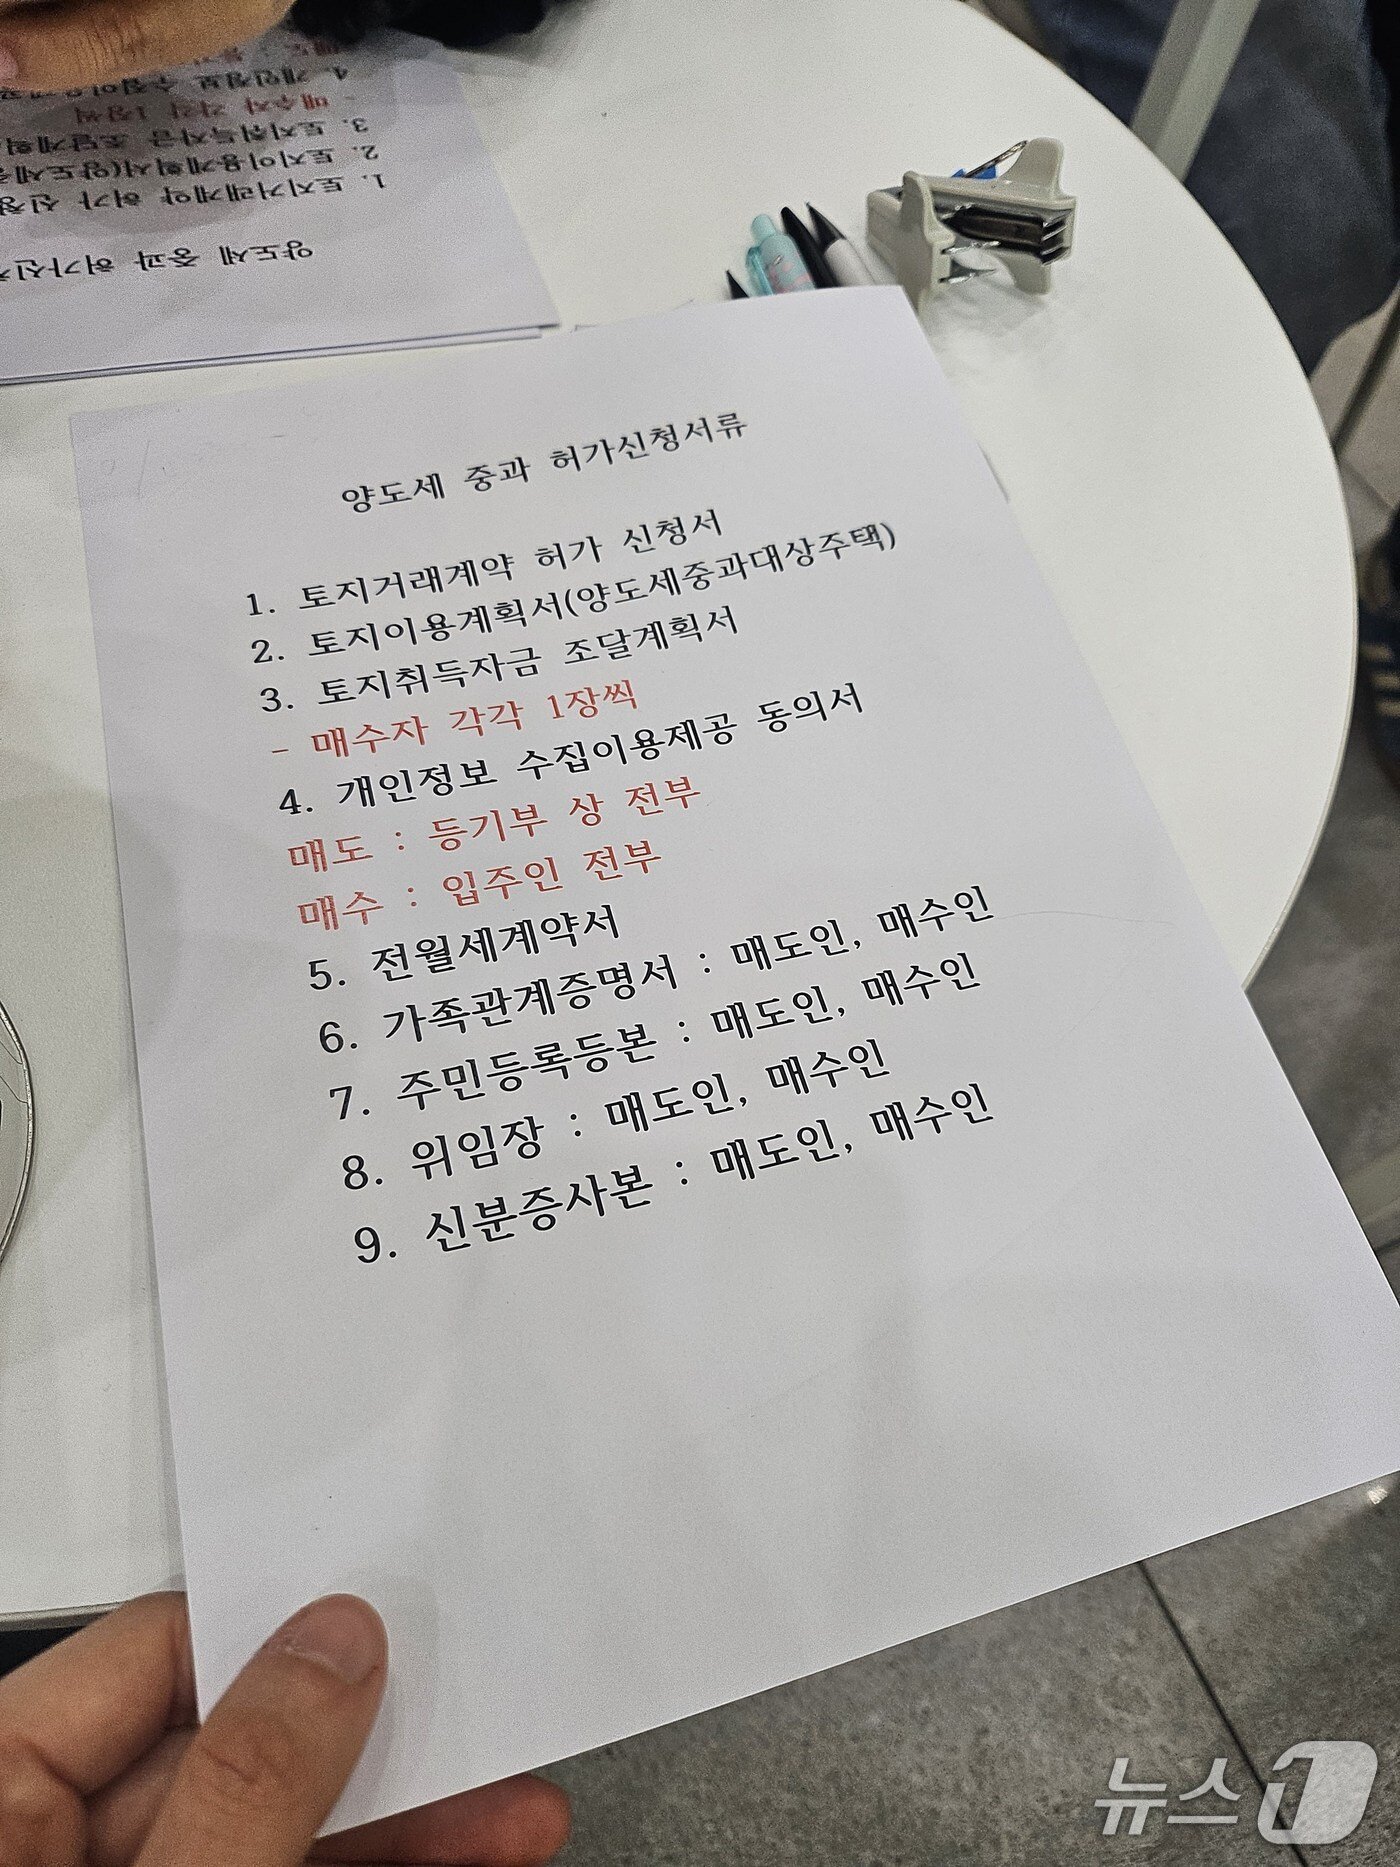 양도세 중과 허가신청서류
1. 토지거래계약 허가 신청서
2. 토지이용계획서(양도세중과대상주택)
3. 토지취득자금 조달계획서
- 매수자 각각 1장씩
4. 개인정보 수집이용제공 동의서
매도 : 등기부 상 전부
매수 : 입주인 전부
5. 전월세계약서
6. 가족관계증명서 : 매도인, 매수인
7. 주민등록등본 : 매도인, 매수인
8. 위임장 : 매도인, 매수인
9. 신분증사본 : 매도인, 매수인
양도세 중과 허가신
1. 토지거래계약 허가 신청
2. 토지이용계획서(양도세중
3. 토지취득자금 조달계획
- 매수자 각각 1장씩
4. 개인정보
뉴스1